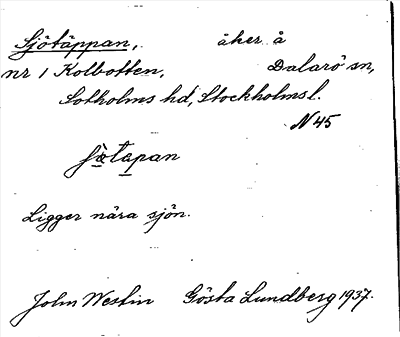 Sjötäppan, åker å
nr 1 Kolbotten, Dalarö sn,
Sotholms hd, Stockholms l.
N 45
Ligger nära sjön.
John Westin Gösta Lundberg 1937.